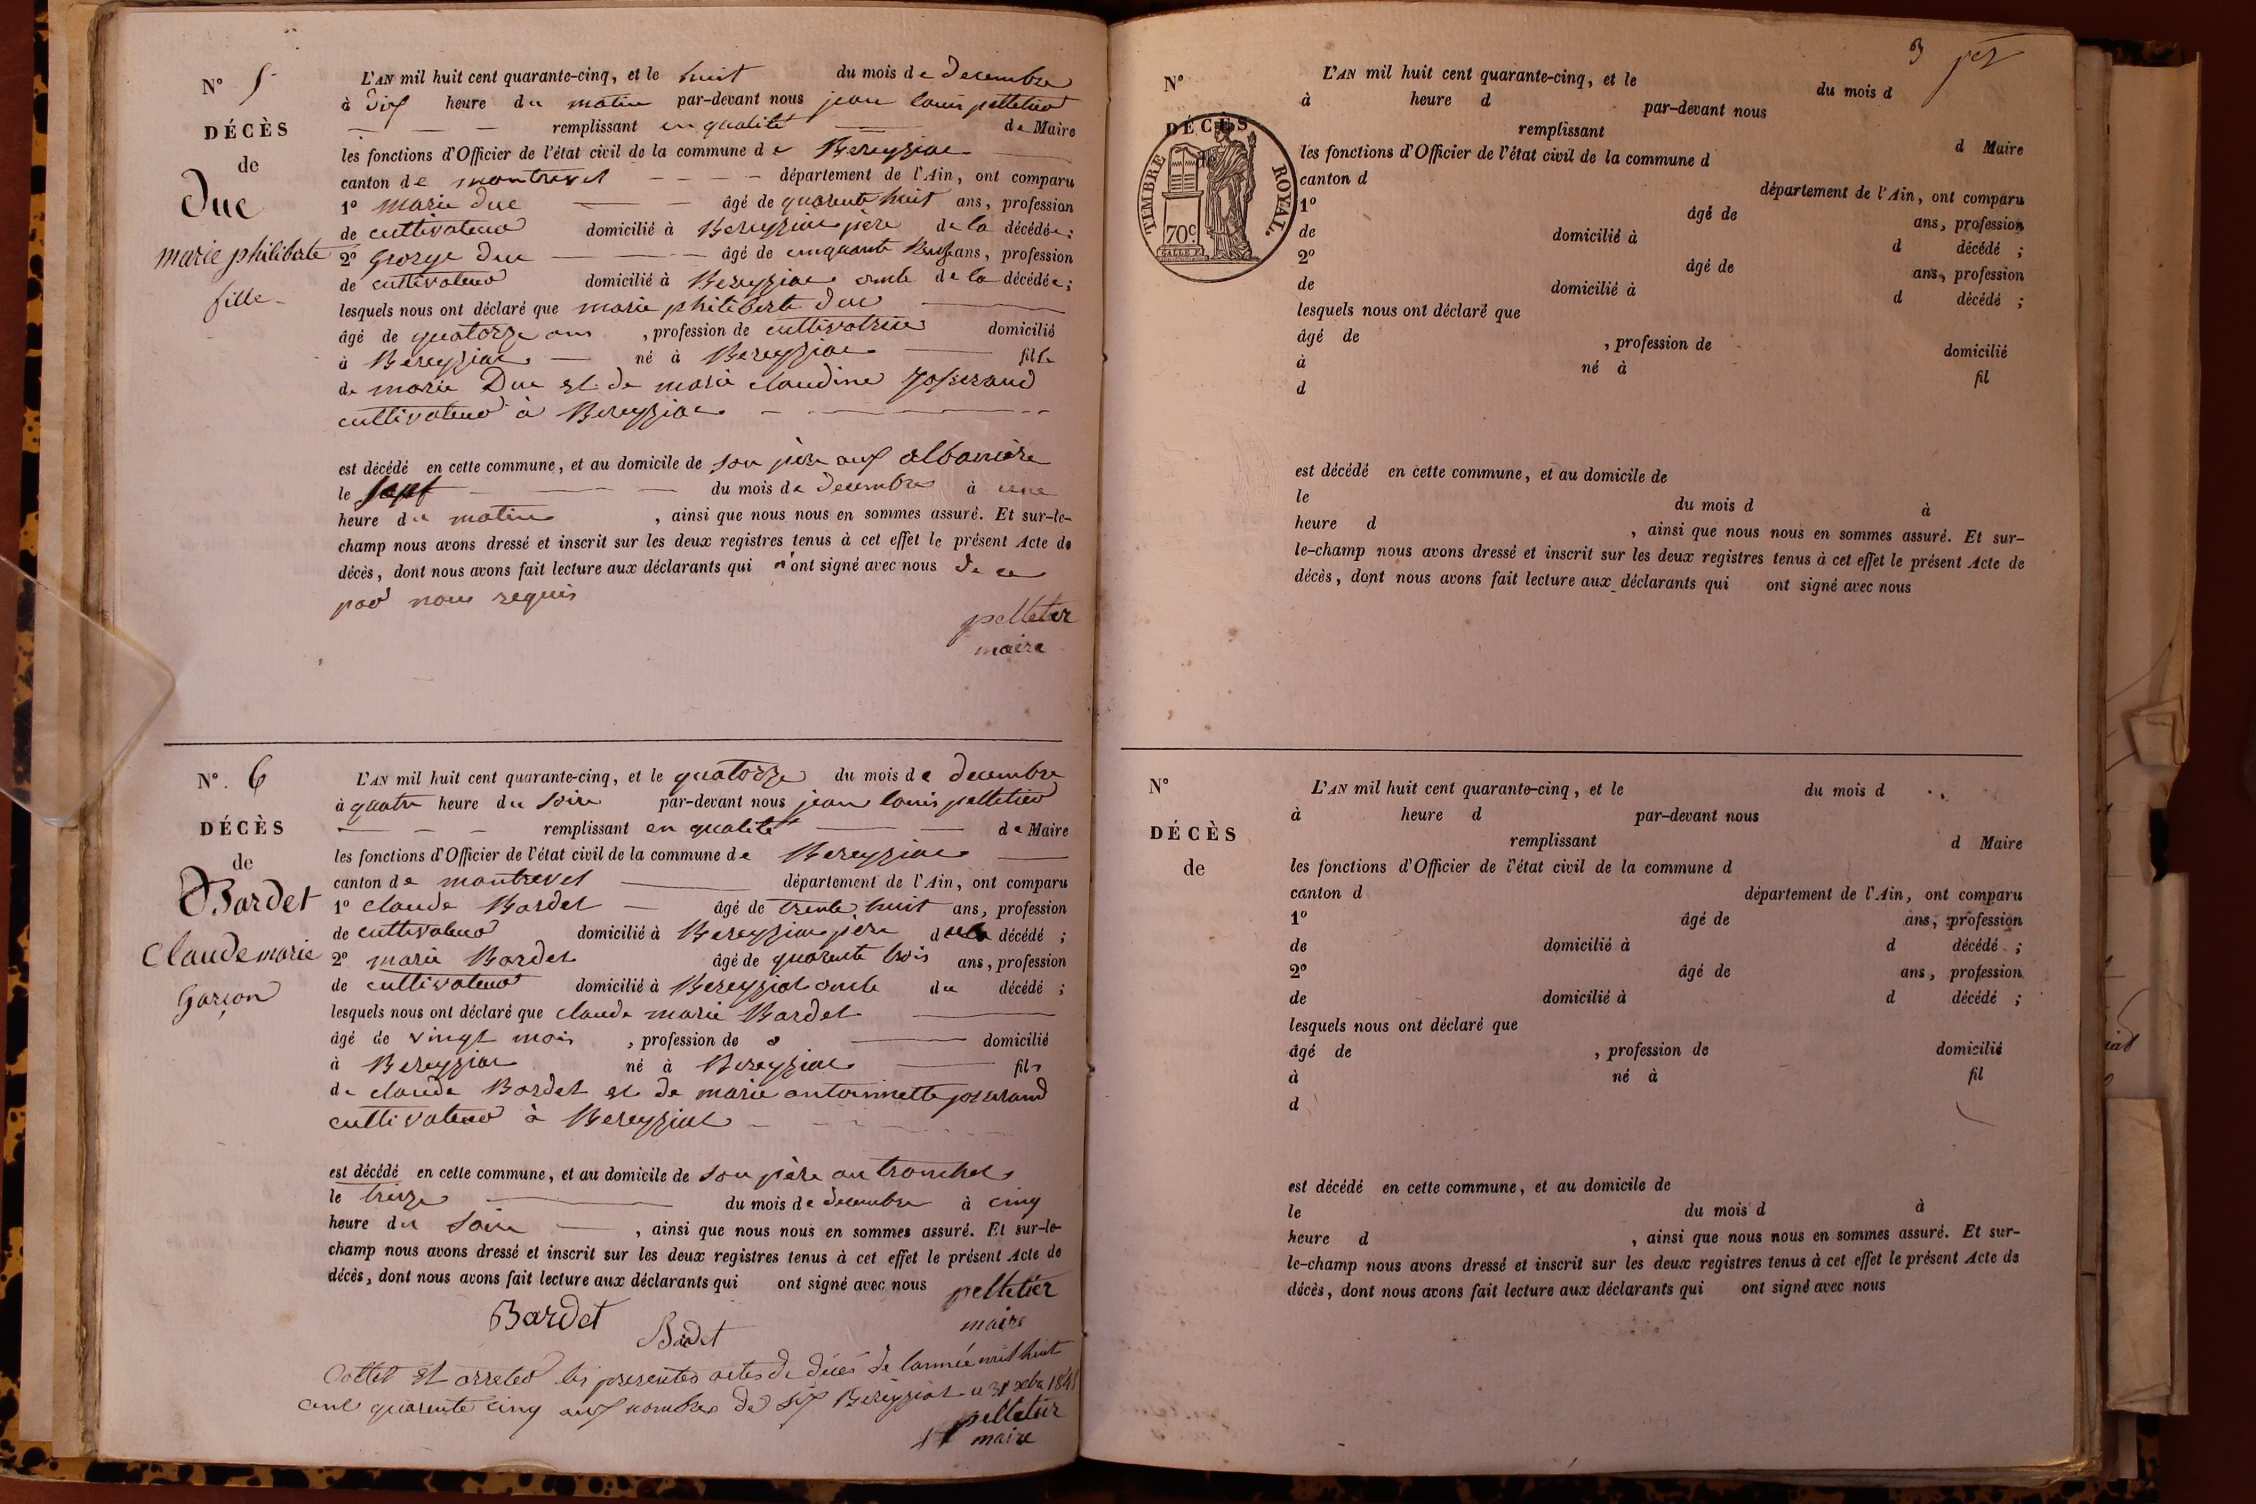 N° 5
DÉCÈS
de
Duc
marie philiberte
fille
L'AN mil huit cent quarante-cinq, et le huit du mois de decembre
à dix heure du matin par-devant nous jean louis pelletier
remplissant en qualité de Maire
les fonctions d'Officier de l'état civil de la commune de Bereyziac
canton de montrevel département de l'Ain, ont comparu
1° marie duc âgé de quarente huit ans, profession
de cultivateur domicilié à Bereyziac père de la décédée;
2° George Duc âgé de cinquante ans, profession
de cultivateur domicilié à Bereyziac oncle de la décédée;
lesquels nous ont déclaré que marie philiberte duc
âgé de quatorze ans, profession de cultivatrice domicilié
à Bereyziac né à Bereyziac fille
de marie Duc et de marie claudine Josserand
cultivateur à Bereyziac
est décédé en cette commune, et au domicile de son père aux albonnière
le sept du mois de decembre à une
heure du matin, ainsi que nous nous en sommes assuré. Et sur-le-
champ nous avons dressé et inscrit sur les deux registres tenus à cet effet le présent Acte de
décès, dont nous avons fait lecture aux déclarants qui n'ont signé avec nous de ce
par nous requis
pelletier
maire
N°. 6
DÉCÈS
de
Bardet
Claude marie
Garçon
L'AN mil huit cent quarante-cinq, et le quatorze du mois de decembre
à quatre heure du soire par-devant nous jean louis pelletier
remplissant en qualité de Maire
les fonctions d'Officier de l'état civil de la commune de Bereyziac
canton de montrevel département de l'Ain, ont comparu
1° claude Bardet âgé de trente huit ans, profession
de cultivateur domicilié à Bereyziac père du décédé;
2° marie Bardet âgé de quarente trois ans, profession
de cultivateur domicilié à Bereyziat oncle du décédé;
lesquels nous ont déclaré que claude marie Bardet
âgé de vingt mois, profession de domicilié
à Bereyziac né à Bereyziac fils
de claude Bardet et de marie antoinette josserand
cultivateur à Bereyziat
est décédé en cette commune, et au domicile de son père au tronchet
le treize du mois de decembre à cinq
heure du soire, ainsi que nous nous en sommes assuré. Et sur-le-
champ nous avons dressé et inscrit sur les deux registres tenus à cet effet le présent Acte de
décès, dont nous avons fait lecture aux déclarants qui ont signé avec nous pelletier
maire
Bardet
Bardet
Collet et arreter les presentes actes de décès de lannée mil huit
cent quarente cinq aux nombre de six Bereyziat le 31 xbre 1845
pelletier
maire
3
N°
DÉCÈS
de
TIMBRE ROYAL.
70c.
L'AN mil huit cent quarante-cinq, et le du mois d
à heure d par-devant nous
remplissant d Maire
les fonctions d'Officier de l'état civil de la commune d
canton d département de l'Ain, ont comparu
1° âgé de ans, profession
de domicilié à d décédé ;
2° âgé de ans, profession
de domicilié à d décédé ;
lesquels nous ont déclaré que
âgé de , profession de domicilié
à né à fil
d
est décédé en cette commune, et au domicile de
le du mois d à
heure d , ainsi que nous nous en sommes assuré. Et sur-
le-champ nous avons dressé et inscrit sur les deux registres tenus à cet effet le présent Acte de
décès, dont nous avons fait lecture aux déclarants qui ont signé avec nous
N°
DÉCÈS
de
L'AN mil huit cent quarante-cinq, et le du mois d
à heure d par-devant nous
remplissant d Maire
les fonctions d'Officier de l'état civil de la commune d
canton d département de l'Ain, ont comparu
1° âgé de ans, profession
de domicilié à d décédé ;
2° âgé de ans, profession
de domicilié à d décédé ;
lesquels nous ont déclaré que
âgé de , profession de domicilié
à né à fil
d
est décédé en cette commune, et au domicile de
le du mois d à
heure d , ainsi que nous nous en sommes assuré. Et sur-
le-champ nous avons dressé et inscrit sur les deux registres tenus à cet effet le présent Acte de
décès, dont nous avons fait lecture aux déclarants qui ont signé avec nous